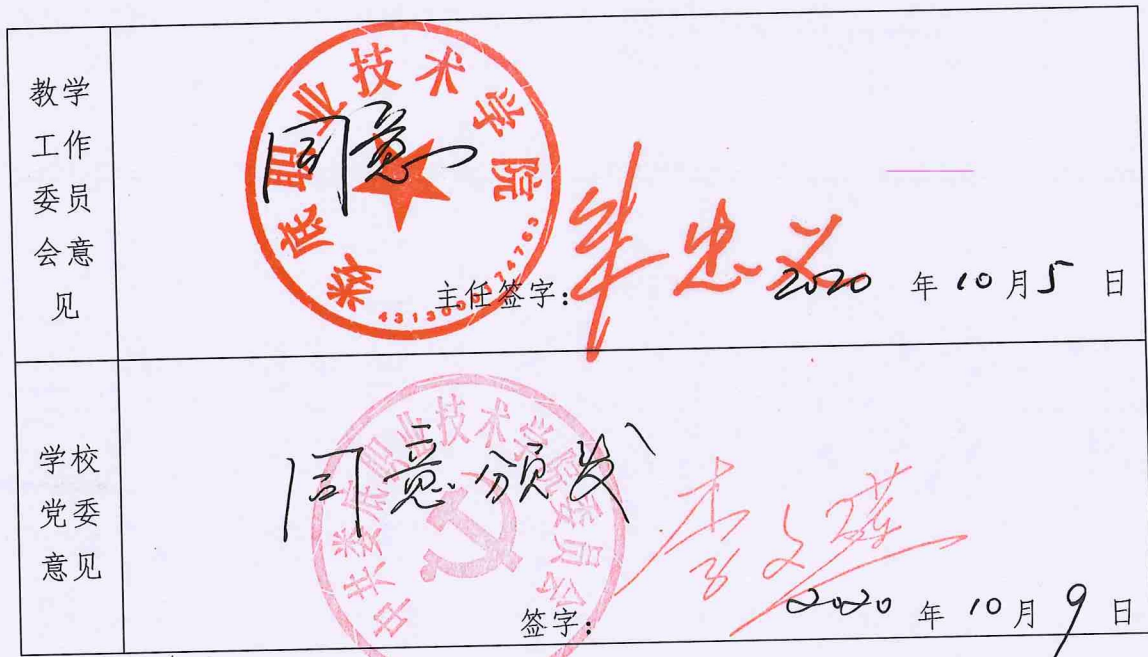 教学
工作
委员
会意
见
娄底职业技术学院
同意
4313000174763
主任签字:
2020 年 10 月 5 日
学校
党委
意见
中共娄底职业技术学院委员会
同意颁发
签字:
2020 年 10 月 9 日